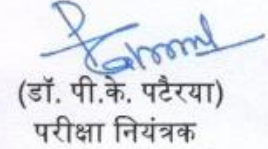 (डॉ. पी.के. पटैरया)
परीक्षा नियंत्रक